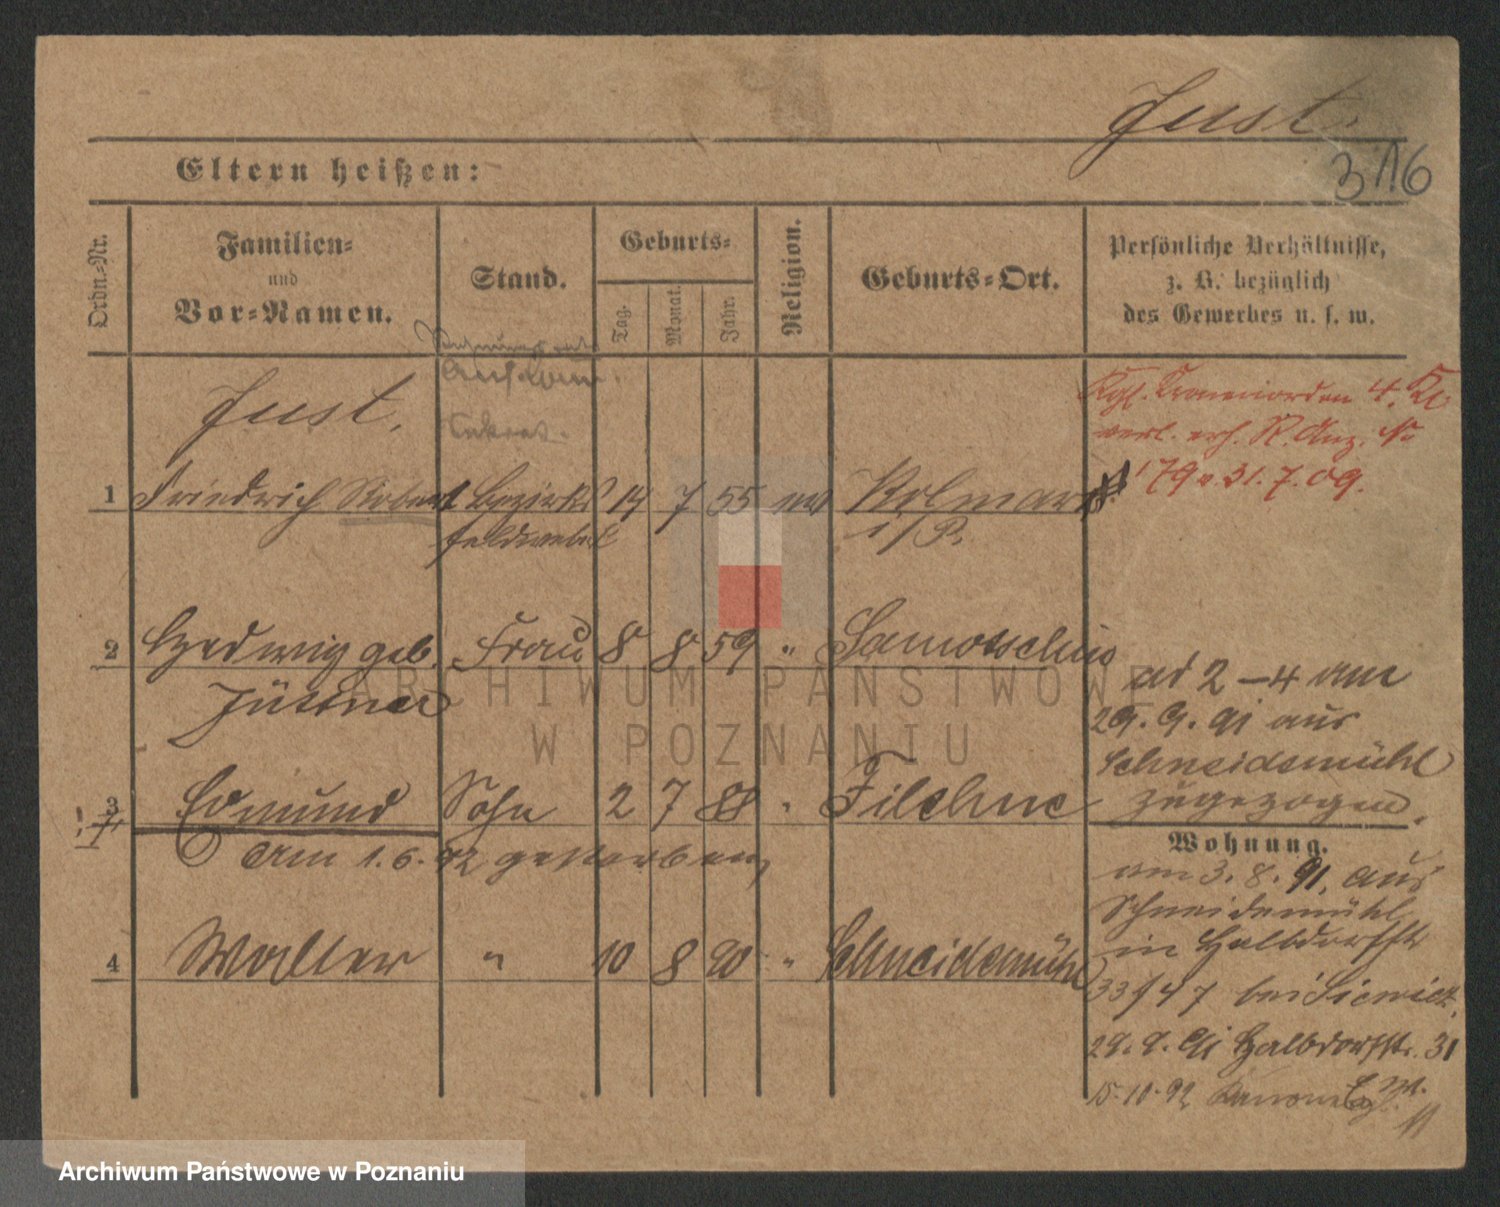 Just.
316
Eltern heißen:
Ordn.-Nr.
Familien-
und
Vor-Namen.
Stand.
Geburts-
Tag.
Monat.
Jahr.
Religion.
Geburts-Ort.
Persönliche Verhältnisse,
z. B. bezüglich
des Gewerbes u. s. w.
Just.
Kgl. Kronenorden 4. Kl
verl. erh. R. Anz. No
179 v. 31. 7. 09.
1 Friedrich Robert Bezirks 14 7 55 Kolmar
feldwebel i/P.
2 Hedwig geb. Frau 8 8 59 " Samotschin
Jüttner
ad 2-4 am
29. 9. 91 aus
Schneidemühl
zugezogen.
3 Edmund Sohn 2 7 88 " Filehne
Am 1. 6. 92 gestorben,
Wohnung.
am 3. 8. 91. aus
Schneidemühl
in Halbdorfstr
33/47 bei
4 Walter " 10 8 90 " Schneidemühl
29. 9. 91 Halbdorfstr. 31
15-10-92
11
ARCHIWUM PAŃSTWOWE
W POZNANIU
Archiwum Państwowe w Poznaniu